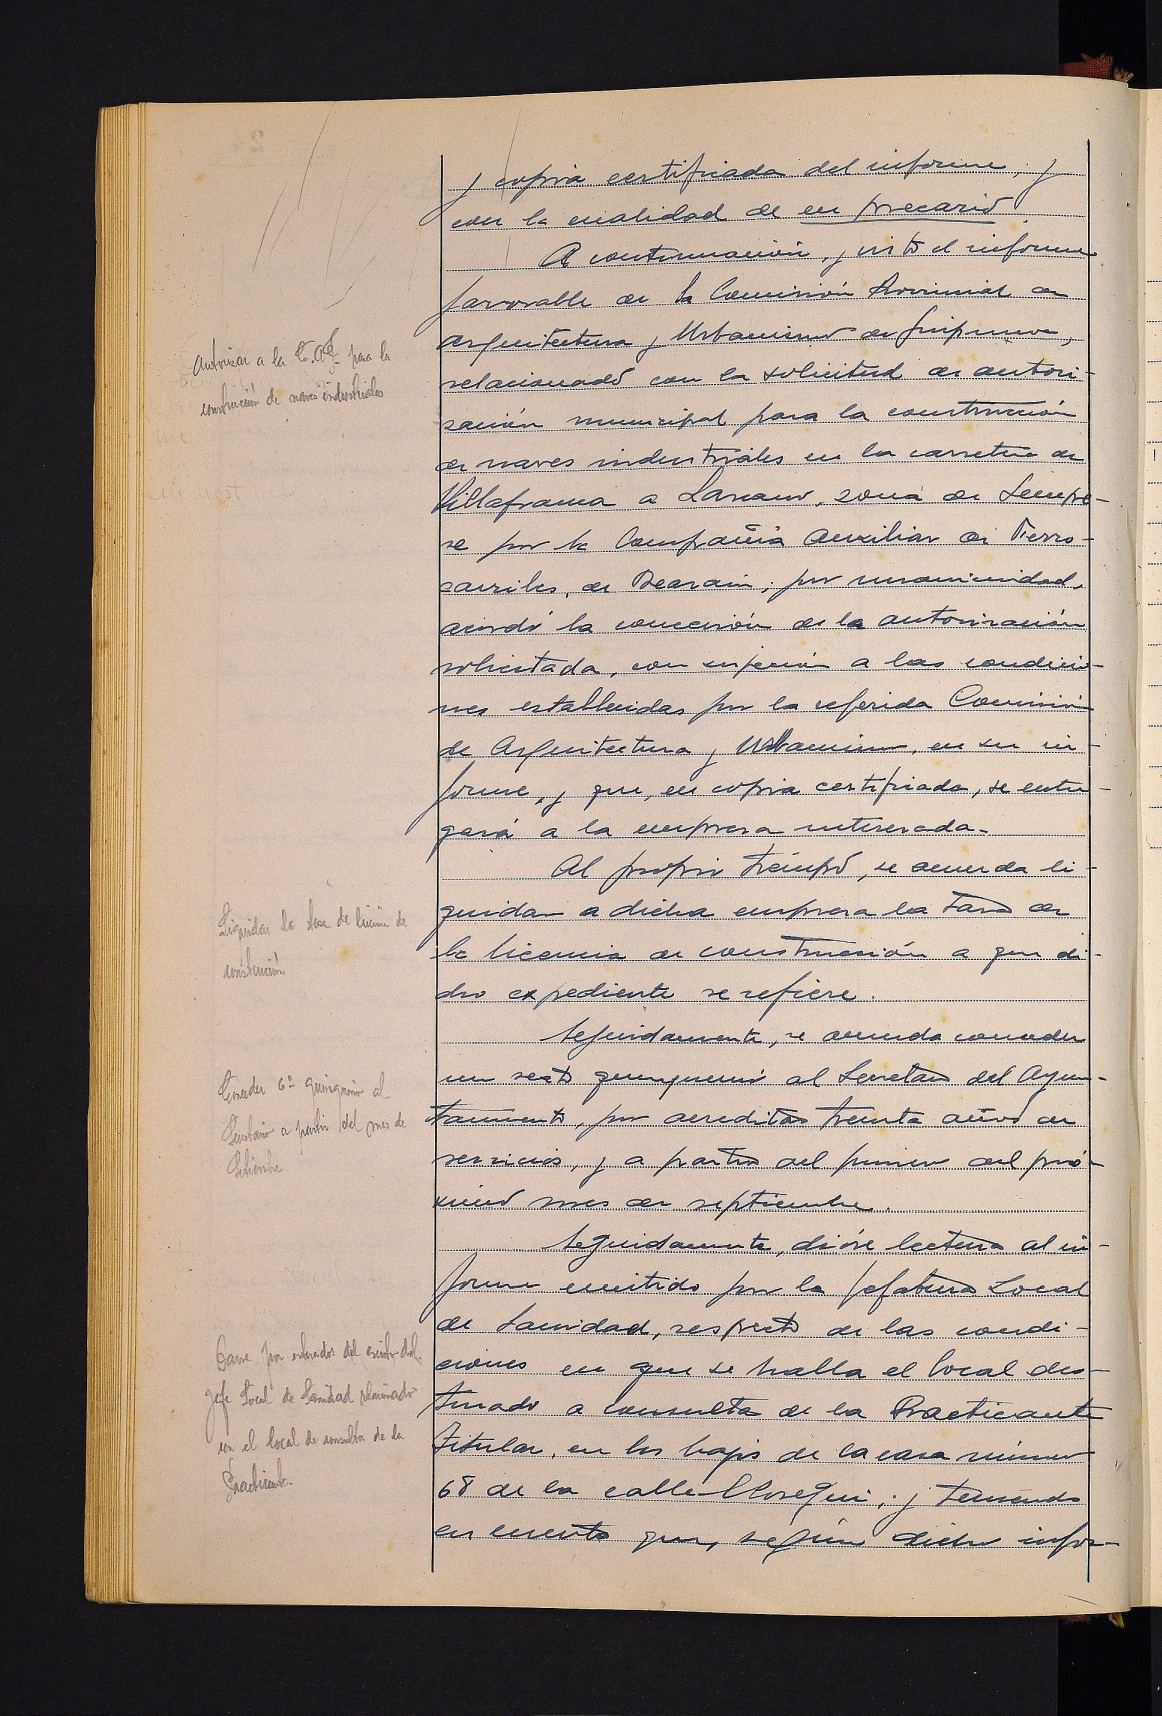 y copia certificada del informe, y
con la cualidad de en precario.
A continuación, y visto el informe
favorable de la Comisión Provincial de
Arquitectura y Urbanismo de Guipuzcoa,
relacionado con la solicitud de autori-
zación municipal para la construcción
de naves industriales en la carretera de
Villafranca a Lazcano, zona de
se por la Compañia Auxiliar de Ferro-
carriles, de Beasain; por unanimidad,
acordó la concesión de la autorización
solicitada, con sujeción a las condicio-
nes establecidas por la referida Comisión
de Arquitectura y Urbanismo, en su in-
forme, y que, en copia certificada, se entre-
gará a la empresa interesada.
Al propio tiempo, se acuerda li-
quidar a dicha empresa la tasa de
la licencia de construcción a que di-
cho expediente se refiere.
Seguidamente, se acuerda conceder
un sexto quinquenio al Secretario del Ayun-
tamiento, por acreditar treinta años de
servicios, y a partir del primero del pró-
ximo mes de septiembre.
Seguidamente, dióse lectura al in-
forme emitido por la Jefatura Local
de Sanidad, respecto de las condi-
ciones en que se halla el local des-
tinado a consulta de la Practicante
Titular, en los bajos de la casa número
68 de la calle Urdaneta; y teniendo
en cuenta que, según dicho infor-
Autorizar a la C.A.F. para la
construcción de naves industriales
Liquidar la tasa de licencia de
construcción
Conceder 6º quinquenio al
Secretario a partir del mes de
Setiembre
Darse por enterados del escrito del
Jefe Local de Sanidad relacionado
con el local de consulta de la
Practicante.